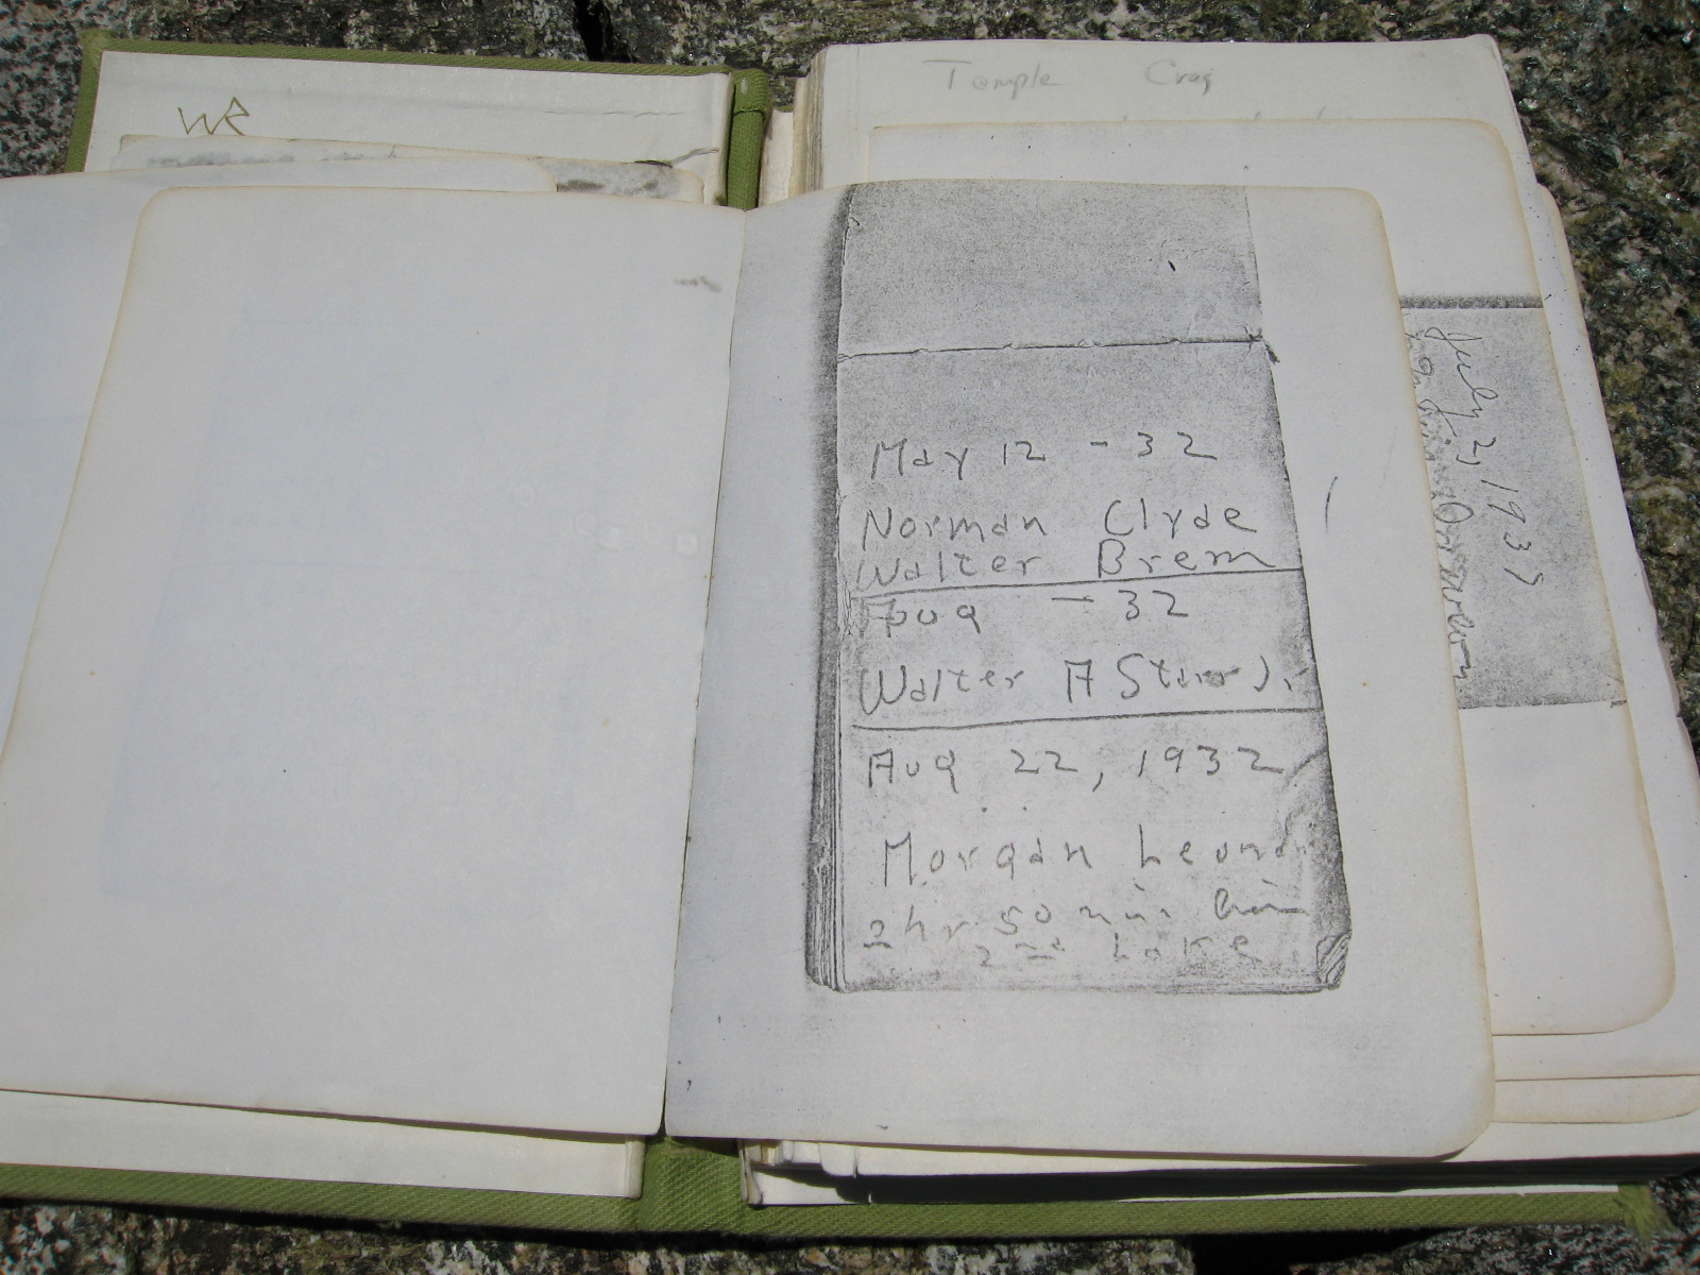 WR
Temple Crag
May 12 - 32
Norman Clyde
Walter Brem
Aug - 32
Walter A Starr Jr
Aug 22, 1932
Morgan Leona
2 hr 50 min
2nd Lake
July 2, 1937